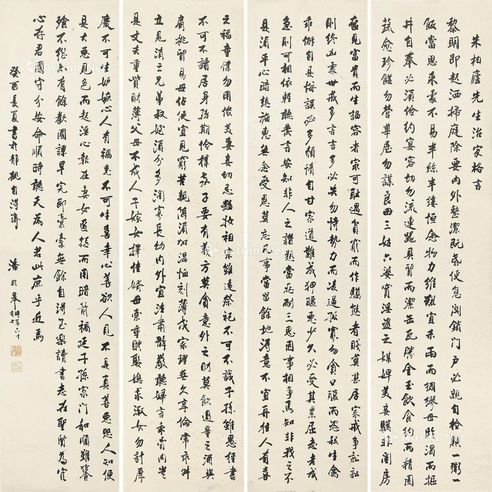 朱柏廬先生治家格言
黎明即起洒掃庭除要內外整潔既昏便息關鎖門戶必親自檢點一粥一
飯當思來處不易半絲半縷恆念物力維艱宜未雨而綢繆毋臨渴而掘
井自奉必須儉約宴客切勿流連器具質而潔瓦缶勝金玉飲食約而精園
蔬愈珍饈勿營華屋勿謀良田三姑六婆實淫盜之媒婢美妾嬌非閨房
在見富貴而生諂容者最可恥遇貧窮而作驕態者賤莫甚居家戒爭訟訟
則終凶處世戒多言言多必失勿恃勢力而凌逼孤寡勿貪口腹而恣殺生禽
乖僻自是悔誤必多頹惰自甘家道難成狎昵惡少久必受其累屈志老成
急則可相依輕聽發言安知非人之譖愬當忍耐三思因事相爭焉知非我之不
是須平心暗想施惠無念受恩莫忘凡事當留餘地得意不宜再往人有喜
之福童僕勿用俊美妻妾切忌艷妝祖宗雖遠祭祀不可不誠子孫雖愚經書
不可不讀居身務期儉樸教子要有義方莫貪意外之財莫飲過量之酒與
肩挑貿易毋佔便宜見窮苦親鄰須加溫恤刻薄成家理無久享倫常乖舛
立見消亡兄弟叔姪須分多潤寡長幼內外宜法肅辭嚴聽婦言乖骨肉
豈是丈夫重貲財薄父母不成人子嫁女擇佳婿毋索重聘娶媳求淑女勿計厚
慶不可生妒嫉心人有禍患不可生喜幸心善欲人見不是真善惡恐人知便
是大惡見色而起淫心報在妻女匿怨而用暗箭禍延子孫家門和順雖饔
飧不繼亦有餘歡國課早完即囊橐無餘自得至樂讀書志在聖賢為官
心存君國守分安命順時聽天為人若此庶乎近焉
癸酉長夏書於靜觀自得齋
潘齡皋時年六十七